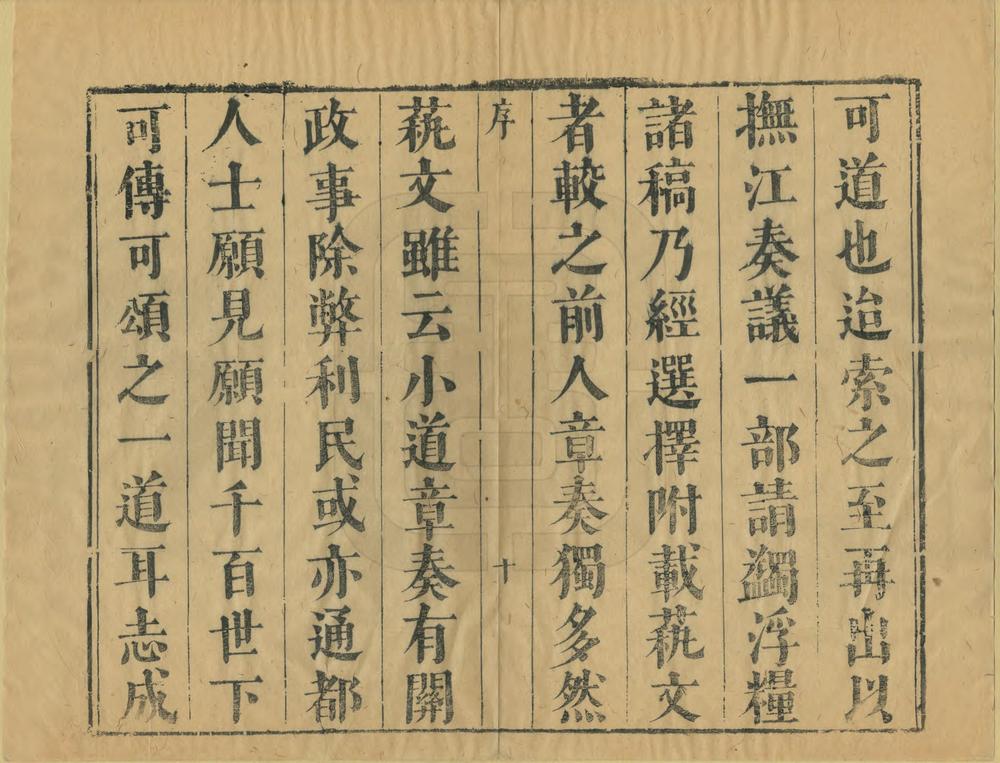 可道也迨索之至再出以
撫江奏議一部請蠲浮糧
諸稿乃經選擇附載萟文
者較之前人章奏獨多然
序
十
萟文雖云小道章奏有關
政事除弊利民或亦通都
人士願見願聞千百世下
可傳可頌之一道耳志成